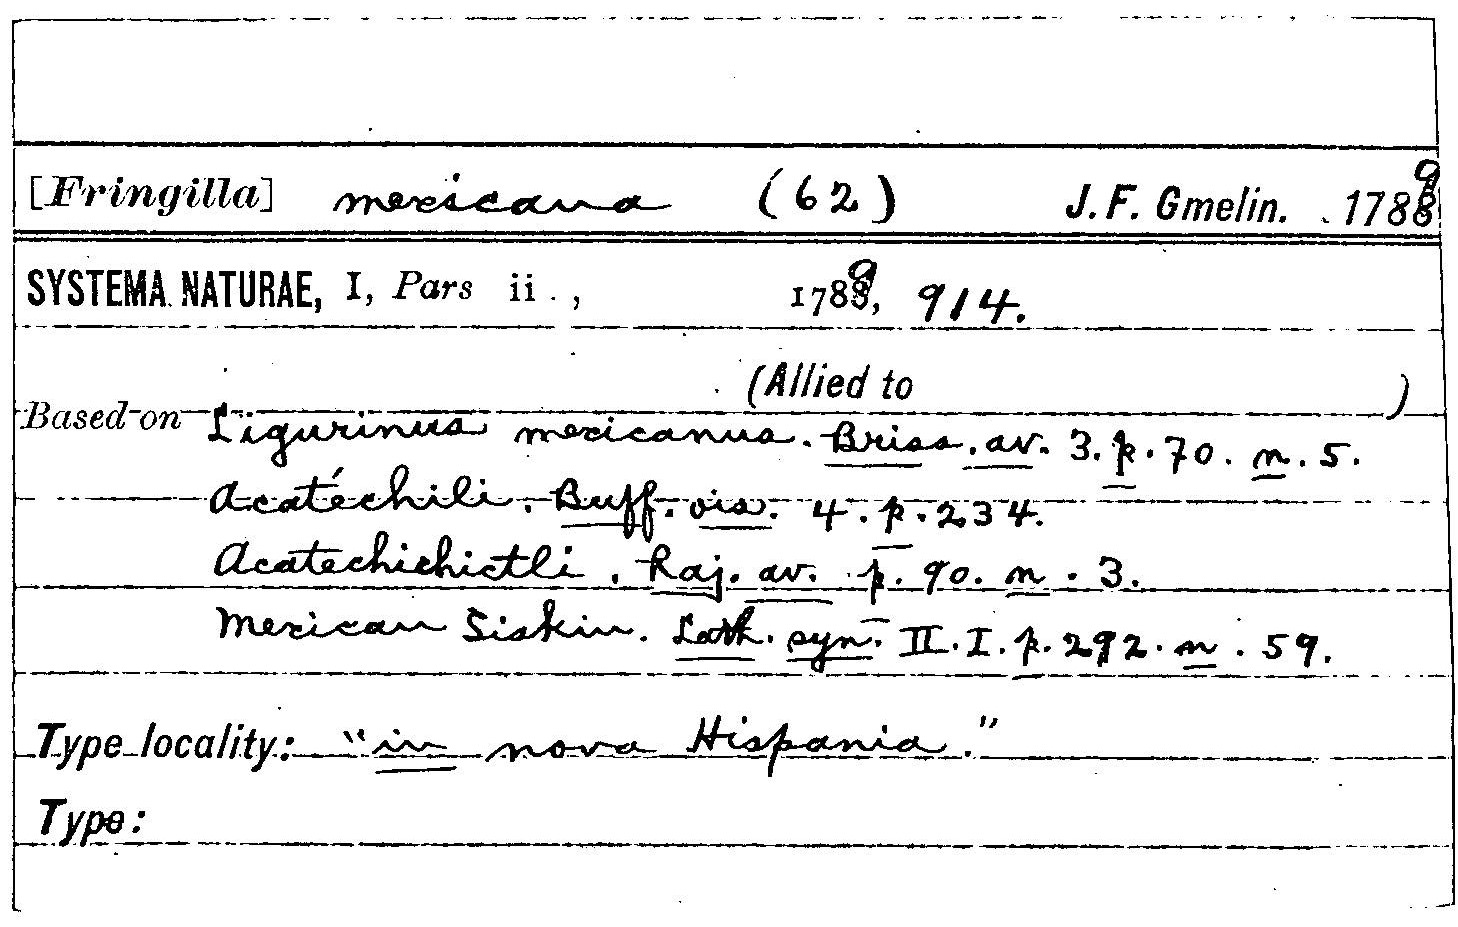 [Fringilla] mexicana (62) J. F. Gmelin. 1789
SYSTEMA NATURAE, I, Pars ii., 1789, 914.
(Allied to )
Based on Ligurinus mexicanus. Briss. av. 3. p. 70. n. 5.
Acatéchili. Buff. ois. 4. p. 234.
Acatechichictli. Raj. av. p. 90. n. 3.
Mexican Siskin. Lath. syn. II. I. p. 292. n. 59.
Type locality: "in nova Hispania."
Type: